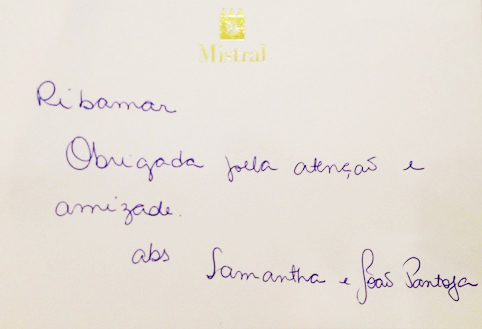 Mistral
Ribamar
Obrigada pela atenção e
amizade.
abs
Samantha e João Pantoja